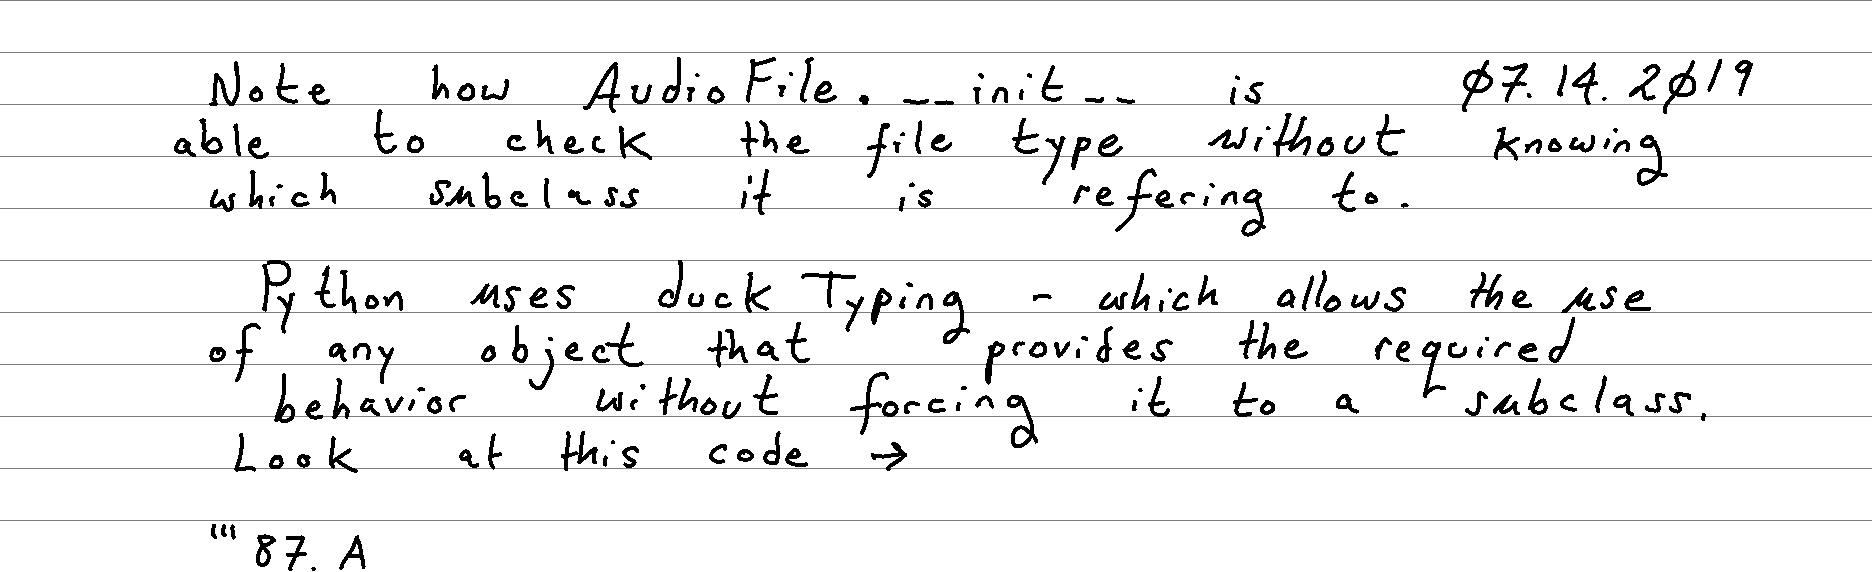 Note how AudioFile.__init__ is 07.14.2019
able to check the file type without knowing
which subclass it is refering to.
Python uses duck Typing - which allows the use
of any object that provides the required
behavior without forcing it to a subclass.
Look at this code →
''' 87. A